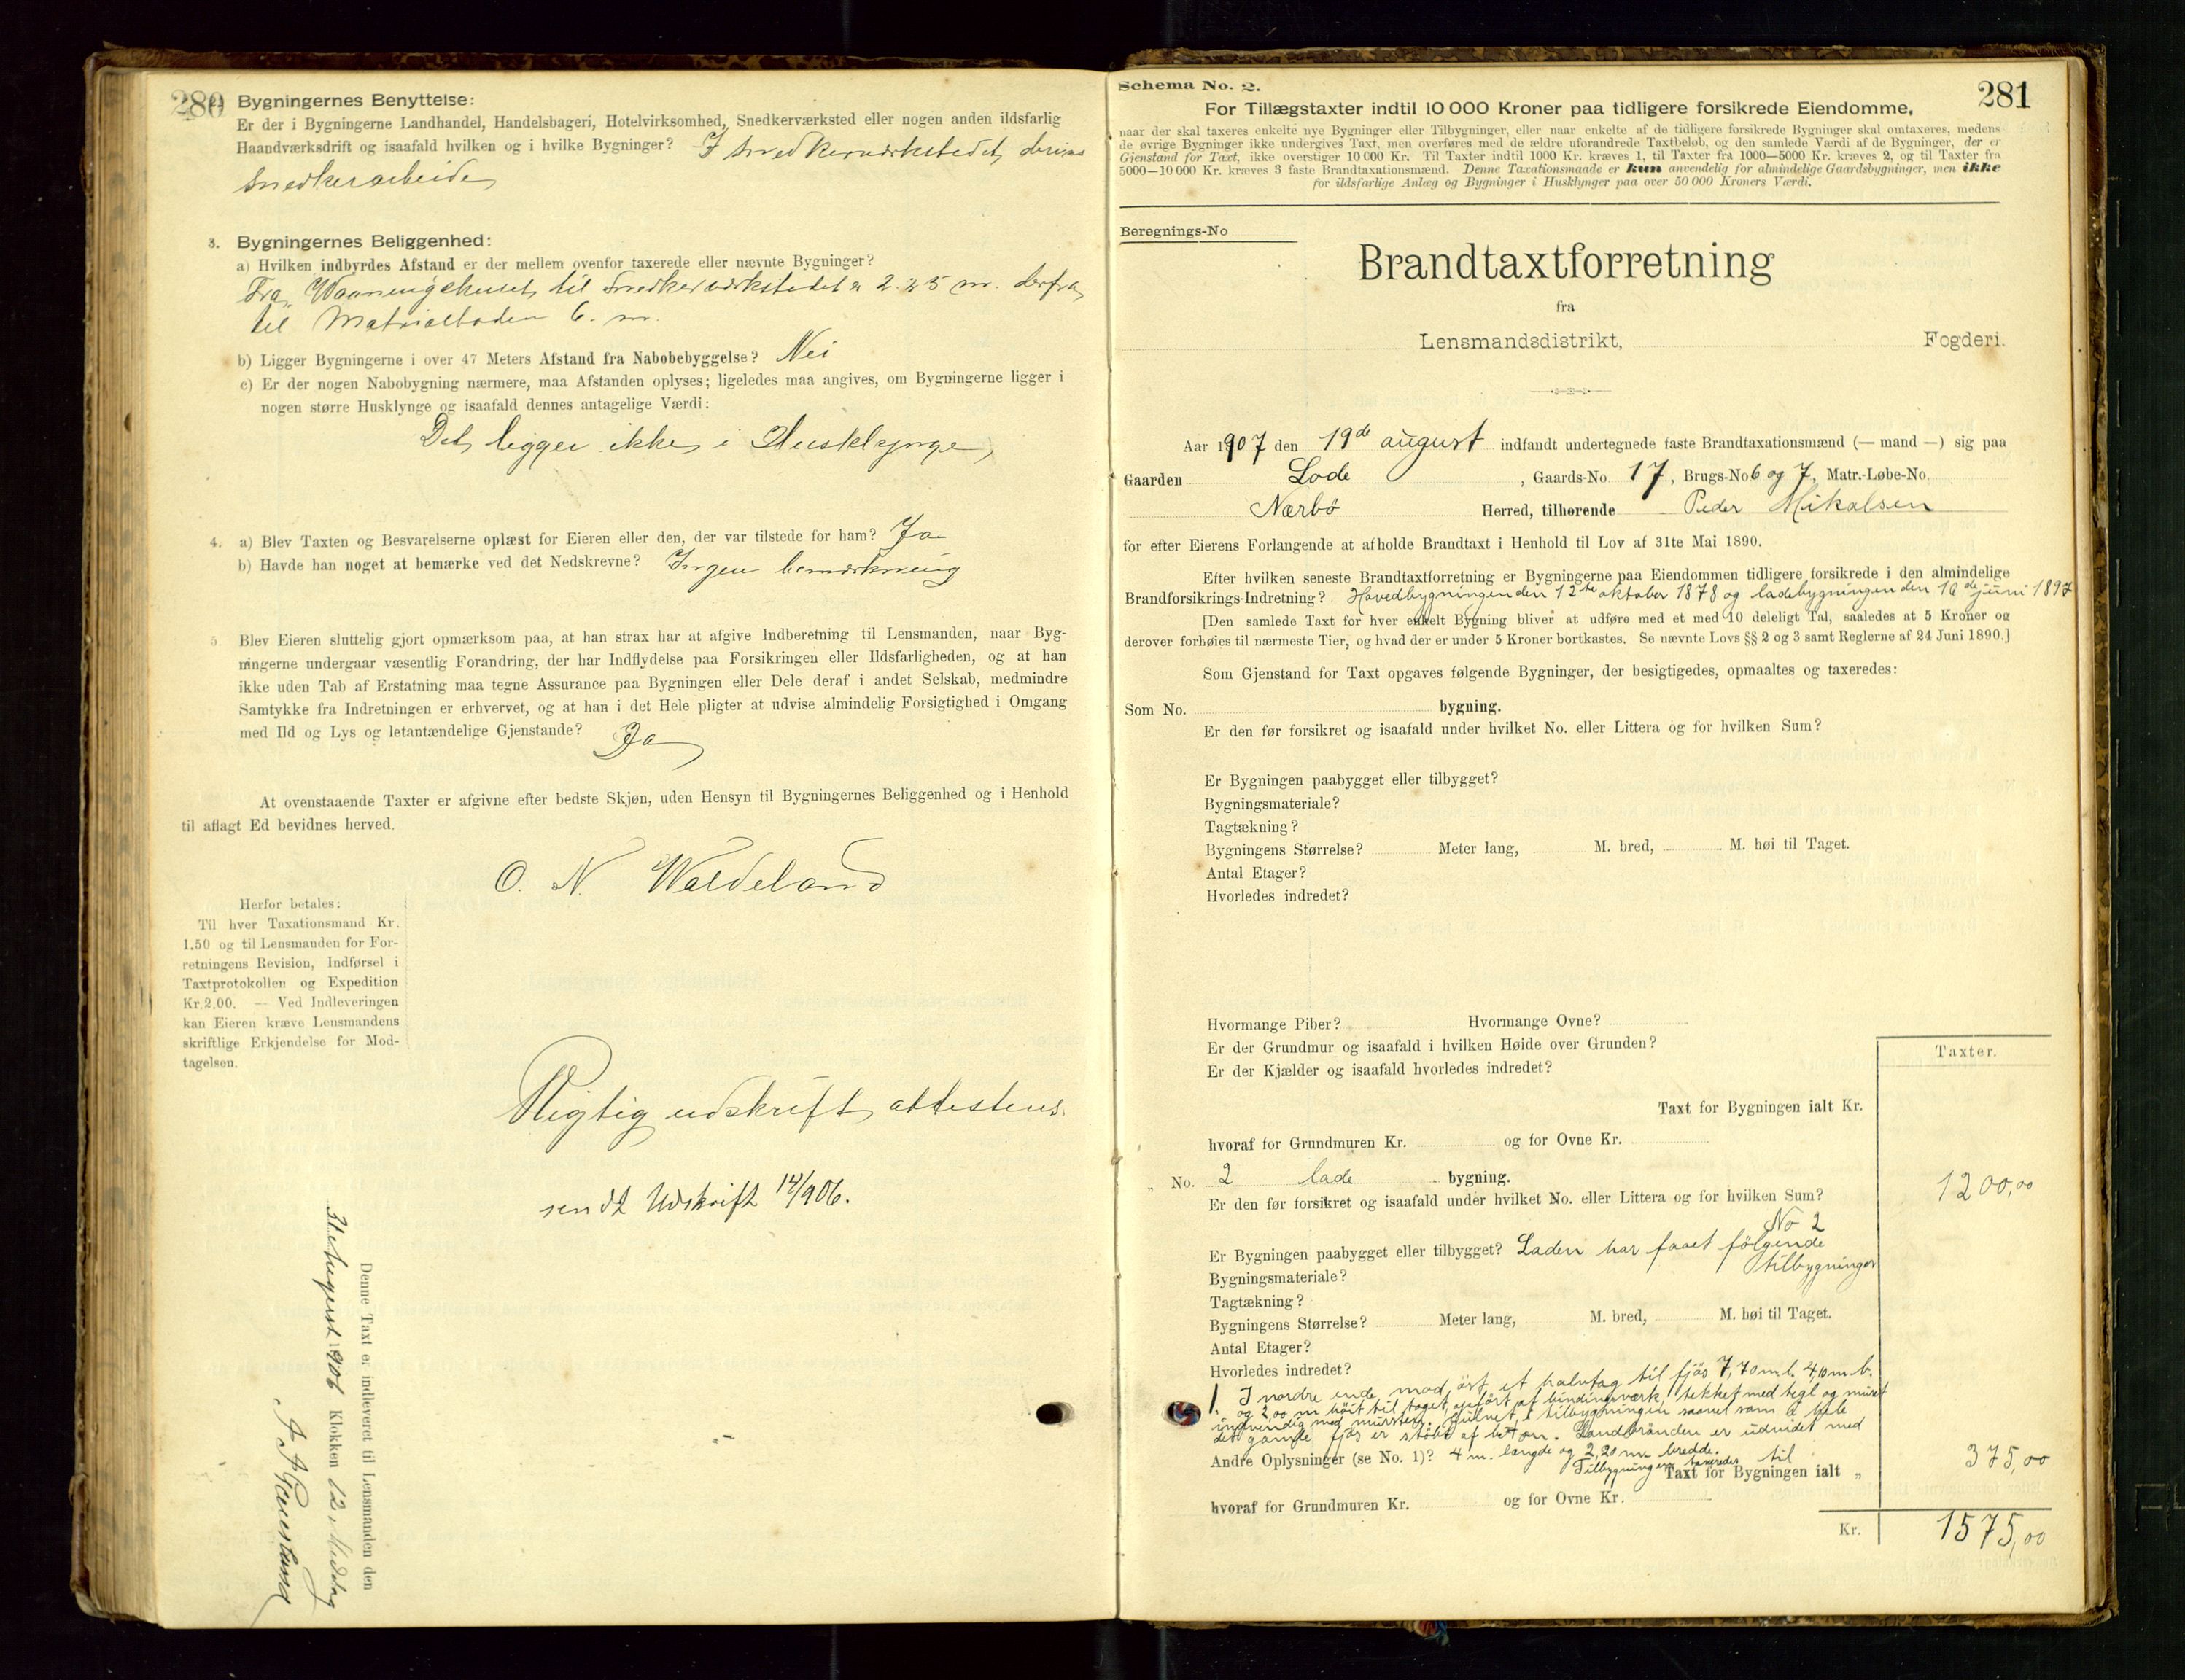 280
2. Bygningernes Benyttelse:
Er der i Bygningerne Landhandel, Handelsbageri, Hotelvirksomhed, Snedkerværksted eller nogen anden ildsfarlig
Haandværksdrift og isaafald hvilken og i hvilke Bygninger? I Snedkerværkstedet drives
Snedkerarbeide
3. Bygningernes Beliggenhed:
a) Hvilken indbyrdes Afstand er der mellem ovenfor taxerede eller nævnte Bygninger?
Fra Vaaningshuset til Snedkerværkstedet er 2.25 m. derfra
til Matrialboden 6. m.
b) Ligger Bygningerne i over 47 Meters Afstand fra Nabobebyggelse? Nei
c) Er der nogen Nabobygning nærmere, maa Afstanden oplyses; ligeledes maa angives, om Bygningerne ligger i
nogen større Husklynge og isaafald dennes antagelige Værdi:
Det ligger ikke i Husklynge
4. a) Blev Taxten og Besvarelserne oplæst for Eieren eller den, der var tilstede for ham? Ja
b) Havde han noget at bemærke ved det Nedskrevne? Ingen bemærkning
5. Blev Eieren sluttelig gjort opmærksom paa, at han strax har at afgive Indberetning til Lensmanden, naar Byg-
ningerne undergaar væsentlig Forandring, der har Indflydelse paa Forsikringen eller Ildsfarligheden, og at han
ikke uden Tab af Erstatning maa tegne Assurance paa Bygningen eller Dele deraf i andet Selskab, medmindre
Samtykke fra Indretningen er erhvervet, og at han i det Hele pligter at udvise almindelig Forsigtighed i Omgang
med Ild og Lys og letantændelige Gjenstande? Ja
At ovenstaaende Taxter er afgivne efter bedste Skjøn, uden Hensyn til Bygningernes Beliggenhed og i Henhold
til aflagt Ed bevidnes herved.
O. N. Waldeland
Herfor betales:
Til hver Taxationsmand Kr.
1.50 og til Lensmanden for For-
retningens Revision, Indførsel i
Taxtprotokollen og Expedition
Kr. 2.00. — Ved Indleveringen
kan Eieren kræve Lensmandens
skriftlige Erkjendelse for Mod-
tagelsen.
Rigtig udskrift attesteres.
sendt Udskrift 14/9 06.
Denne Taxt er indleveret til Lensmanden den
31te August 1906 Klokken 12, Middag
281
Schema No. 2.
For Tillægstaxter indtil 10 000 Kroner paa tidligere forsikrede Eiendomme,
naar der skal taxeres enkelte nye Bygninger eller Tilbygninger, eller naar enkelte af de tidligere forsikrede Bygninger skal omtaxeres, medens
de øvrige Bygninger ikke undergives Taxt, men overføres med de ældre uforandrede Taxtbeløb, og den samlede Værdi af de Bygninger, der er
Gjenstand for Taxt, ikke overstiger 10 000 Kr. Til Taxter indtil 1000 Kr. kræves 1, til Taxter fra 1000—5000 Kr. kræves 2, og til Taxter fra
5000—10 000 Kr. kræves 3 faste Brandtaxationsmænd. Denne Taxationsmaade er kun anvendelig for almindelige Gaardsbygninger, men ikke
for ildsfarlige Anlæg og Bygninger i Husklynger paa over 50 000 Kroners Værdi.
Beregnings-No
Brandtaxtforretning
fra
Lensmandsdistrikt, Fogderi.
Aar 1907 den 19de august indfandt undertegnede faste Brandtaxationsmænd (— mand —) sig paa
Gaarden Lode, Gaards-No. 17, Brugs-No 6 og 7, Matr.-Løbe-No.
Nærbö Herred, tilhørende Peder Mikalsen
for efter Eierens Forlangende at afholde Brandtaxt i Henhold til Lov af 31te Mai 1890.
Efter hvilken seneste Brandtaxtforretning er Bygningerne paa Eiendommen tidligere forsikrede i den almindelige
Brandforsikrings-Indretning? Hovedbygningen den 12te oktober 1878 og ladebygningen den 16de juni 1897
[Den samlede Taxt for hver enkelt Bygning bliver at udføre med et med 10 deleligt Tal, saaledes at 5 Kroner og
derover forhøies til nærmeste Tier, og hvad der er under 5 Kroner bortkastes. Se nævnte Lovs §§ 2 og 3 samt Reglerne af 24 Juni 1890.]
Som Gjenstand for Taxt opgaves følgende Bygninger, der besigtigedes, opmaaltes og taxeredes:
Som No. bygning.
Er den før forsikret og isaafald under hvilket No. eller Littera og for hvilken Sum?
Er Bygningen paabygget eller tilbygget?
Bygningsmateriale?
Tagtækning?
Bygningens Størrelse? Meter lang, M. bred, M. høi til Taget.
Antal Etager?
Hvorledes indredet?
Hvormange Piber? Hvormange Ovne?
Er der Grundmur og isaafald i hvilken Høide over Grunden?
Er der Kjælder og isaafald hvorledes indredet?
Taxter.
Taxt for Bygningen ialt Kr.
hvoraf for Grundmuren Kr. og for Ovne Kr.
„ No. 2 lade bygning. 1200,00
Er den før forsikret og isaafald under hvilket No. eller Littera og for hvilken Sum?
No 2
Er Bygningen paabygget eller tilbygget? Laden har faaet fölgende
tilbygninger
Bygningsmateriale?
Tagtækning?
Bygningens Størrelse? Meter lang, M. bred, M. høi til Taget.
Antal Etager?
Hvorledes indredet?
1. I nordre ende mod öst et halvtag til fjös 7,70 m l. 4,10 m b.
og 2,00 m höit til taget, opfört af bindingsværk, tekket med tegl og muret
indvendig med mursten. Gulvet i tilbygningen saavel som i hele
det gamle fjös er stöbt af beton. Landbrönden er udvidet med
Andre Oplysninger (se No. 1)? 4 m. længde og 2,20 m. bredde.
Tilbygningen taxeredes til
Taxt for Bygningen ialt „ 375,00
hvoraf for Grundmuren Kr. og for Ovne Kr.
Kr. 1575,00